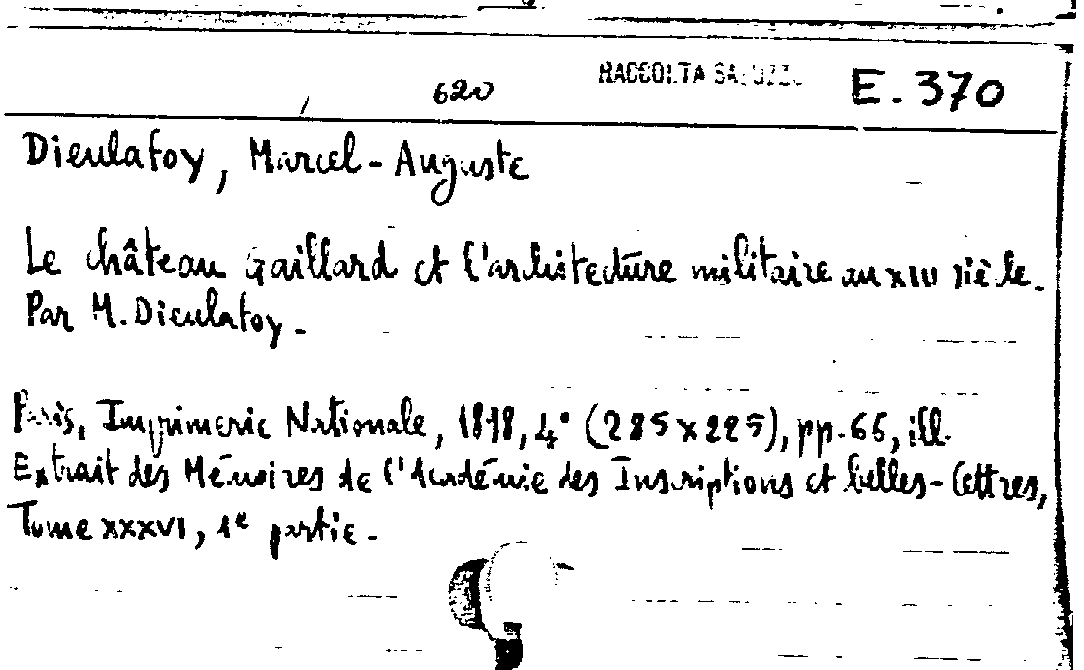 620 RACCOLTA SALUZZO E. 370
Dieulafoy, Marcel-Auguste
Le château Gaillard et l'architecture militaire au XIII siècle.
Par M. Dieulafoy.
Paris, Imprimerie Nationale, 1898, 4° (285x225), pp. 66, ill.
Extrait des Mémoires de l'Académie des Inscriptions et belles-lettres,
Tome XXXVI, 1e partie.